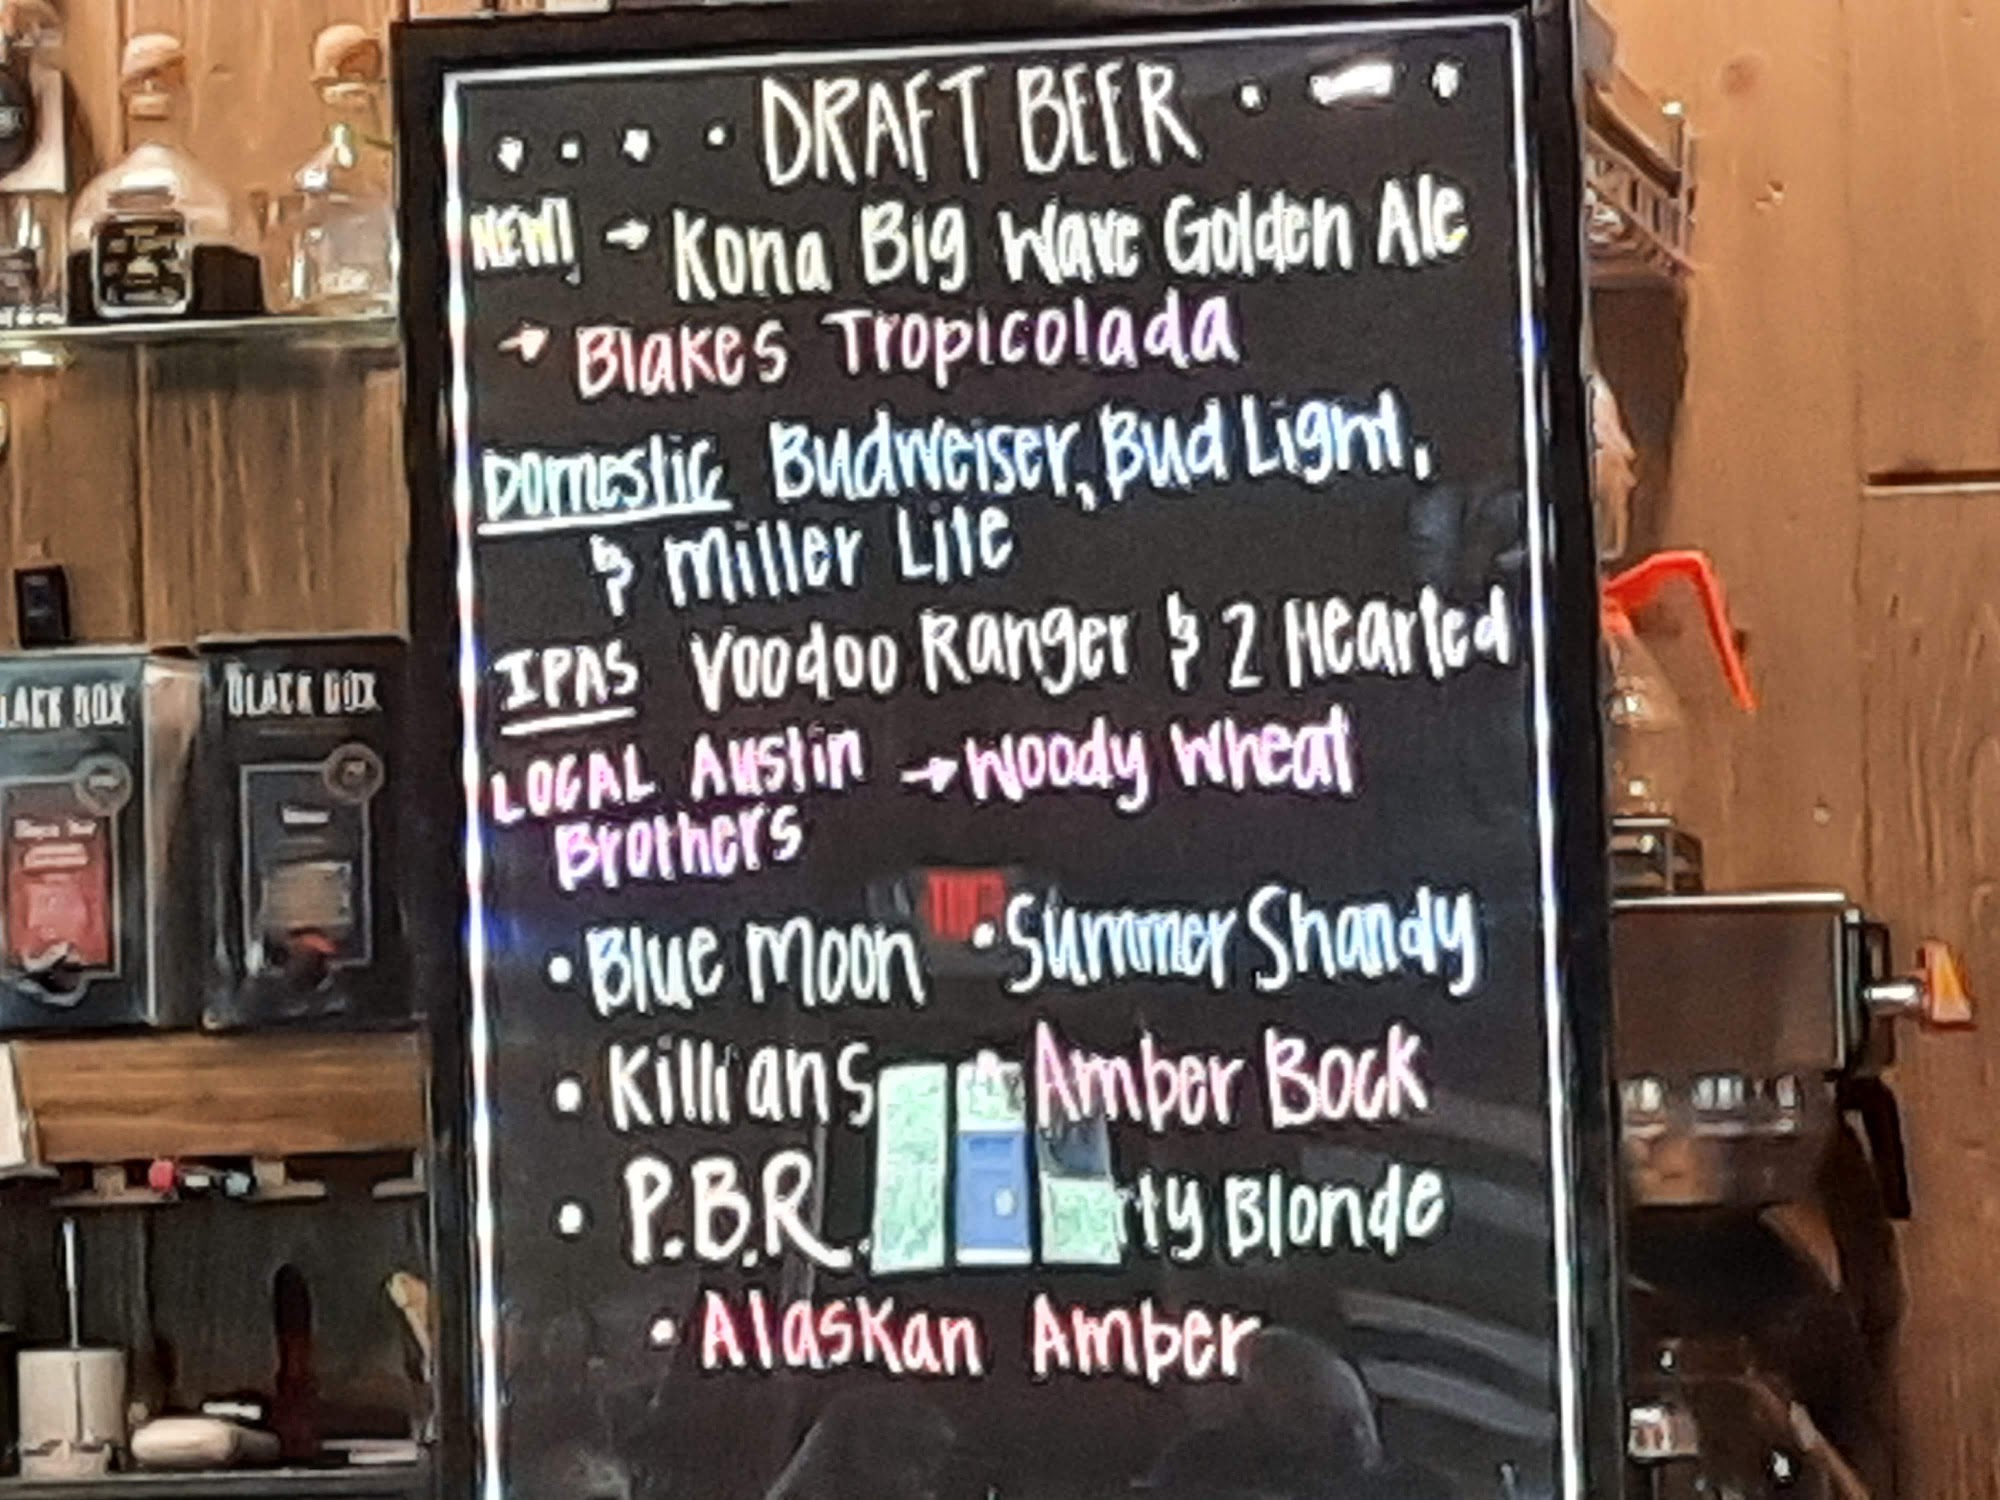 DRAFT BEER
NEW! → Kona Big Wave Golden Ale
→ Blakes Tropicolada
Domestic Budweiser, Bud Light,
& Miller Lite
IPAS Voodoo Ranger & 2 Hearted
LOCAL Austin → Woody Wheat
Brothers
• Blue Moon • Summer Shandy
• Killians • Amber Bock
• P.B.R. Blonde
• Alaskan Amber
BLACK BOX